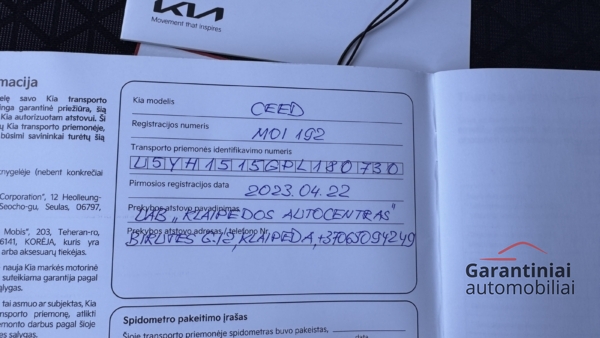 KIA
Movement that inspires
macija
eię savo Kia transporto
inga garantinė priežiūra, šią
Kia autorizuotam atstovui. Ši
ų Kia transporto priemonėje,
būsimi savininkai turėtų šią
knygelėje (nebent konkrečiai
Corporation", 12 Heolleung-
Seocho-gu, Seulas, 06797,
Mobis", 203, Teheran-ro,
6141, KORĖJA, kuris yra
arba aksesuarų tiekėjas.
nauja Kia markės motorinė
suteikiama garantija pagal
lygas.
tai asmuo ar subjektas, Kia
transporto priemonę, atlikti
emonto darbus pagal šioje
es sąlygas.
Kia modelis CEED
Registracijos numeris MOI 192
Transporto priemonės identifikavimo numeris
U5YH1515GPL180730
Pirmosios registracijos data 2023.04.22
Prekybos atstovo pavadinimas
UAB „KLAIPĖDOS AUTOCENTRAS"
Prekybos atstovo adresas / telefono Nr.
BIRUTĖS G.12, KLAIPĖDA, +37065094249
Spidometro pakeitimo įrašas
Šioje transporto priemonėje spidometras buvo pakeistas,
data
Garantiniai
automobiliai